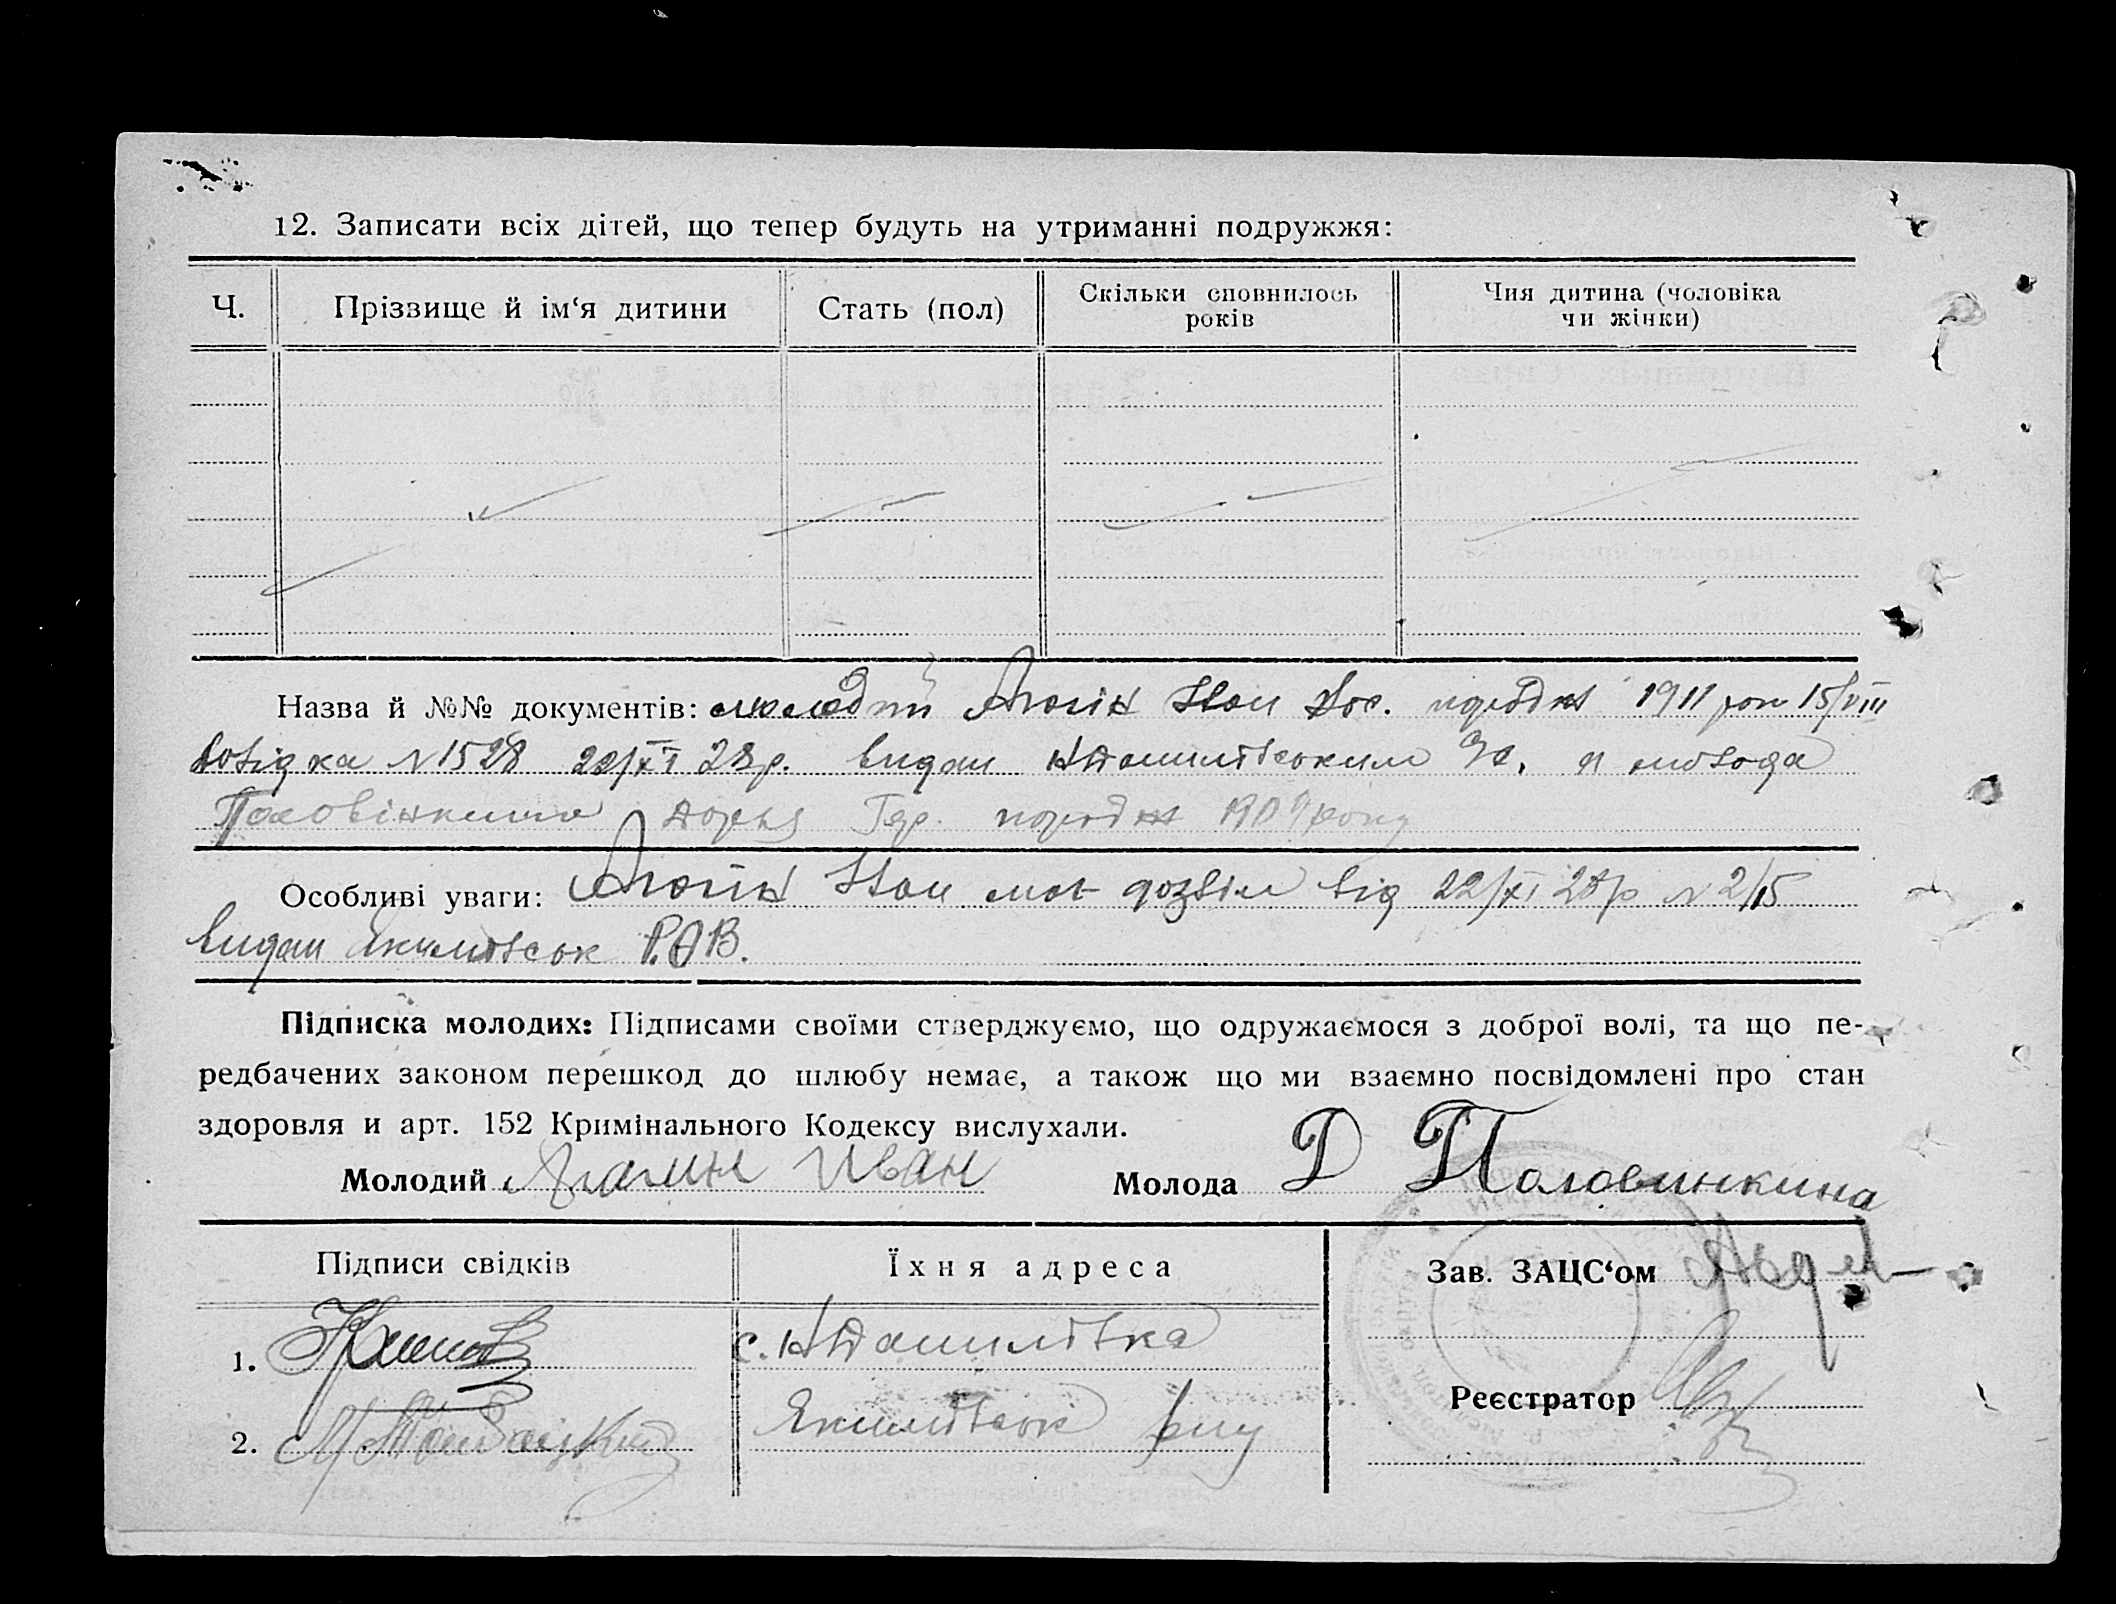 12. Записати всіх дітей, що тепер будуть на утриманні подружжя:
Ч.
Прізвище й ім‘я дитини
Стать (пол)
Скільки сповнилось
років
Чия дитина (чоловіка
чи жінки)
Назва й №№ документів: молодий Іван породж 1911 рок 15/VIII
Довідка N 1528 22/XI 28р. видан молода
Половінкина Дарья породж 1909 року
Особливі уваги: Іван має дозвіл від 22/XI 28р N 2/15
видан Якимівськ
Підписка молодих: Підписами своїми стверджуємо, що одружаємося з доброї волі, та що пе-
редбачених законом перешкод до шлюбу немає, а також що ми взаємно посвідомлені про стан
здоровля и арт. 152 Кримінального Кодексу вислухали.
Молодий Иван
Молода Д Половинкина
Підписи свідків
Їхня адреса
Зав. ЗАЦС‘ом
1.
с.
2.
Якимівськ
Реєстратор